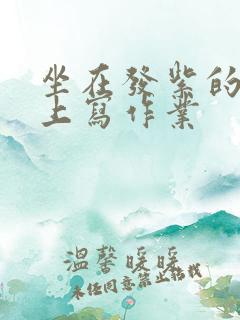 坐在發紫的
上寫作業
溫馨暖暖
未經同意禁止轉載